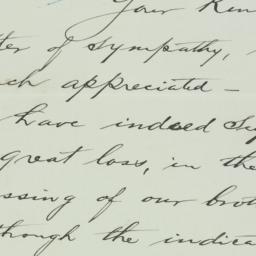 Your Kin
ter of sympathy,
ch appreciated —
have indeed su
great loss, in the
ssing of our brot
through the indica